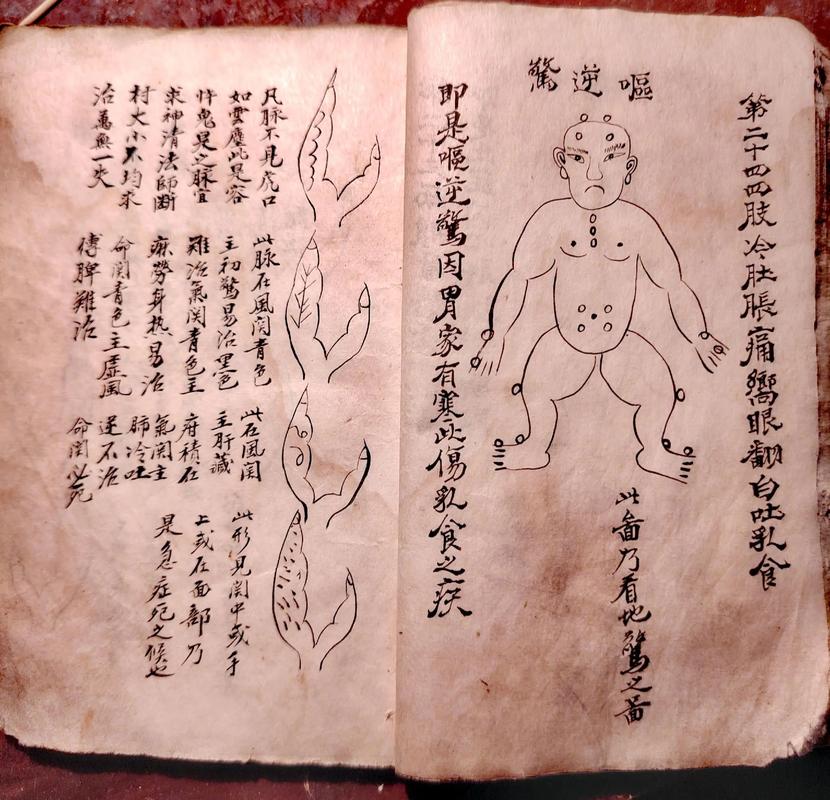 第二十四四肢冷肚脹痛嚮眼翻白吐乳食
嘔逆驚
此啚乃看地驚之啚
即是嘔逆驚因胃家有寒此傷乳食之疾
凡脉不見虎口
如雲塵此是容
忤鬼晃之脉宜
求神清法師断
村大小不均求
治萬無一失
此脉在風関青色
主初驚易治黑色
難治氣関青色主
痳勞身热易治
命関青色主虛風
傳脾難治
此在風関
主肝藏
府積在
氣関主
肺冷吐
逆不治
命関必死
此形見関中或手
上或在面部乃
是急症死之候也